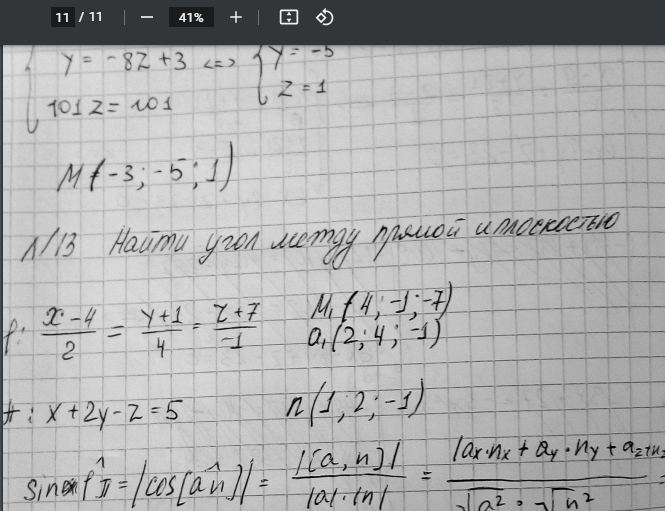 11 / 11 — 41% +
y = -8z + 3 <=> y = -5
101z = 101 z = 1
M(-3; -5; 1)
№13 Найти угол между прямой и плоскостью
ℓ: x-4/2 = y+1/4 = z+7/-1 M₁(4; -1; -7)
a₁(2; 4; -1)
π: x + 2y - z = 5 n(1; 2; -1)
sin ℓ^π = |cos[a^n]| = |[a, n]|/|a|·|n| = |aₓ·nₓ + aᵧ·nᵧ + a_z·n_z/√a²·√n² =